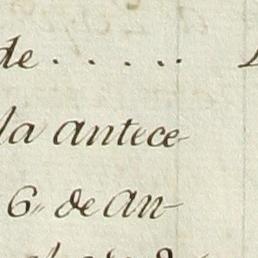 de . . . . . .
la antece-
6,, de An-